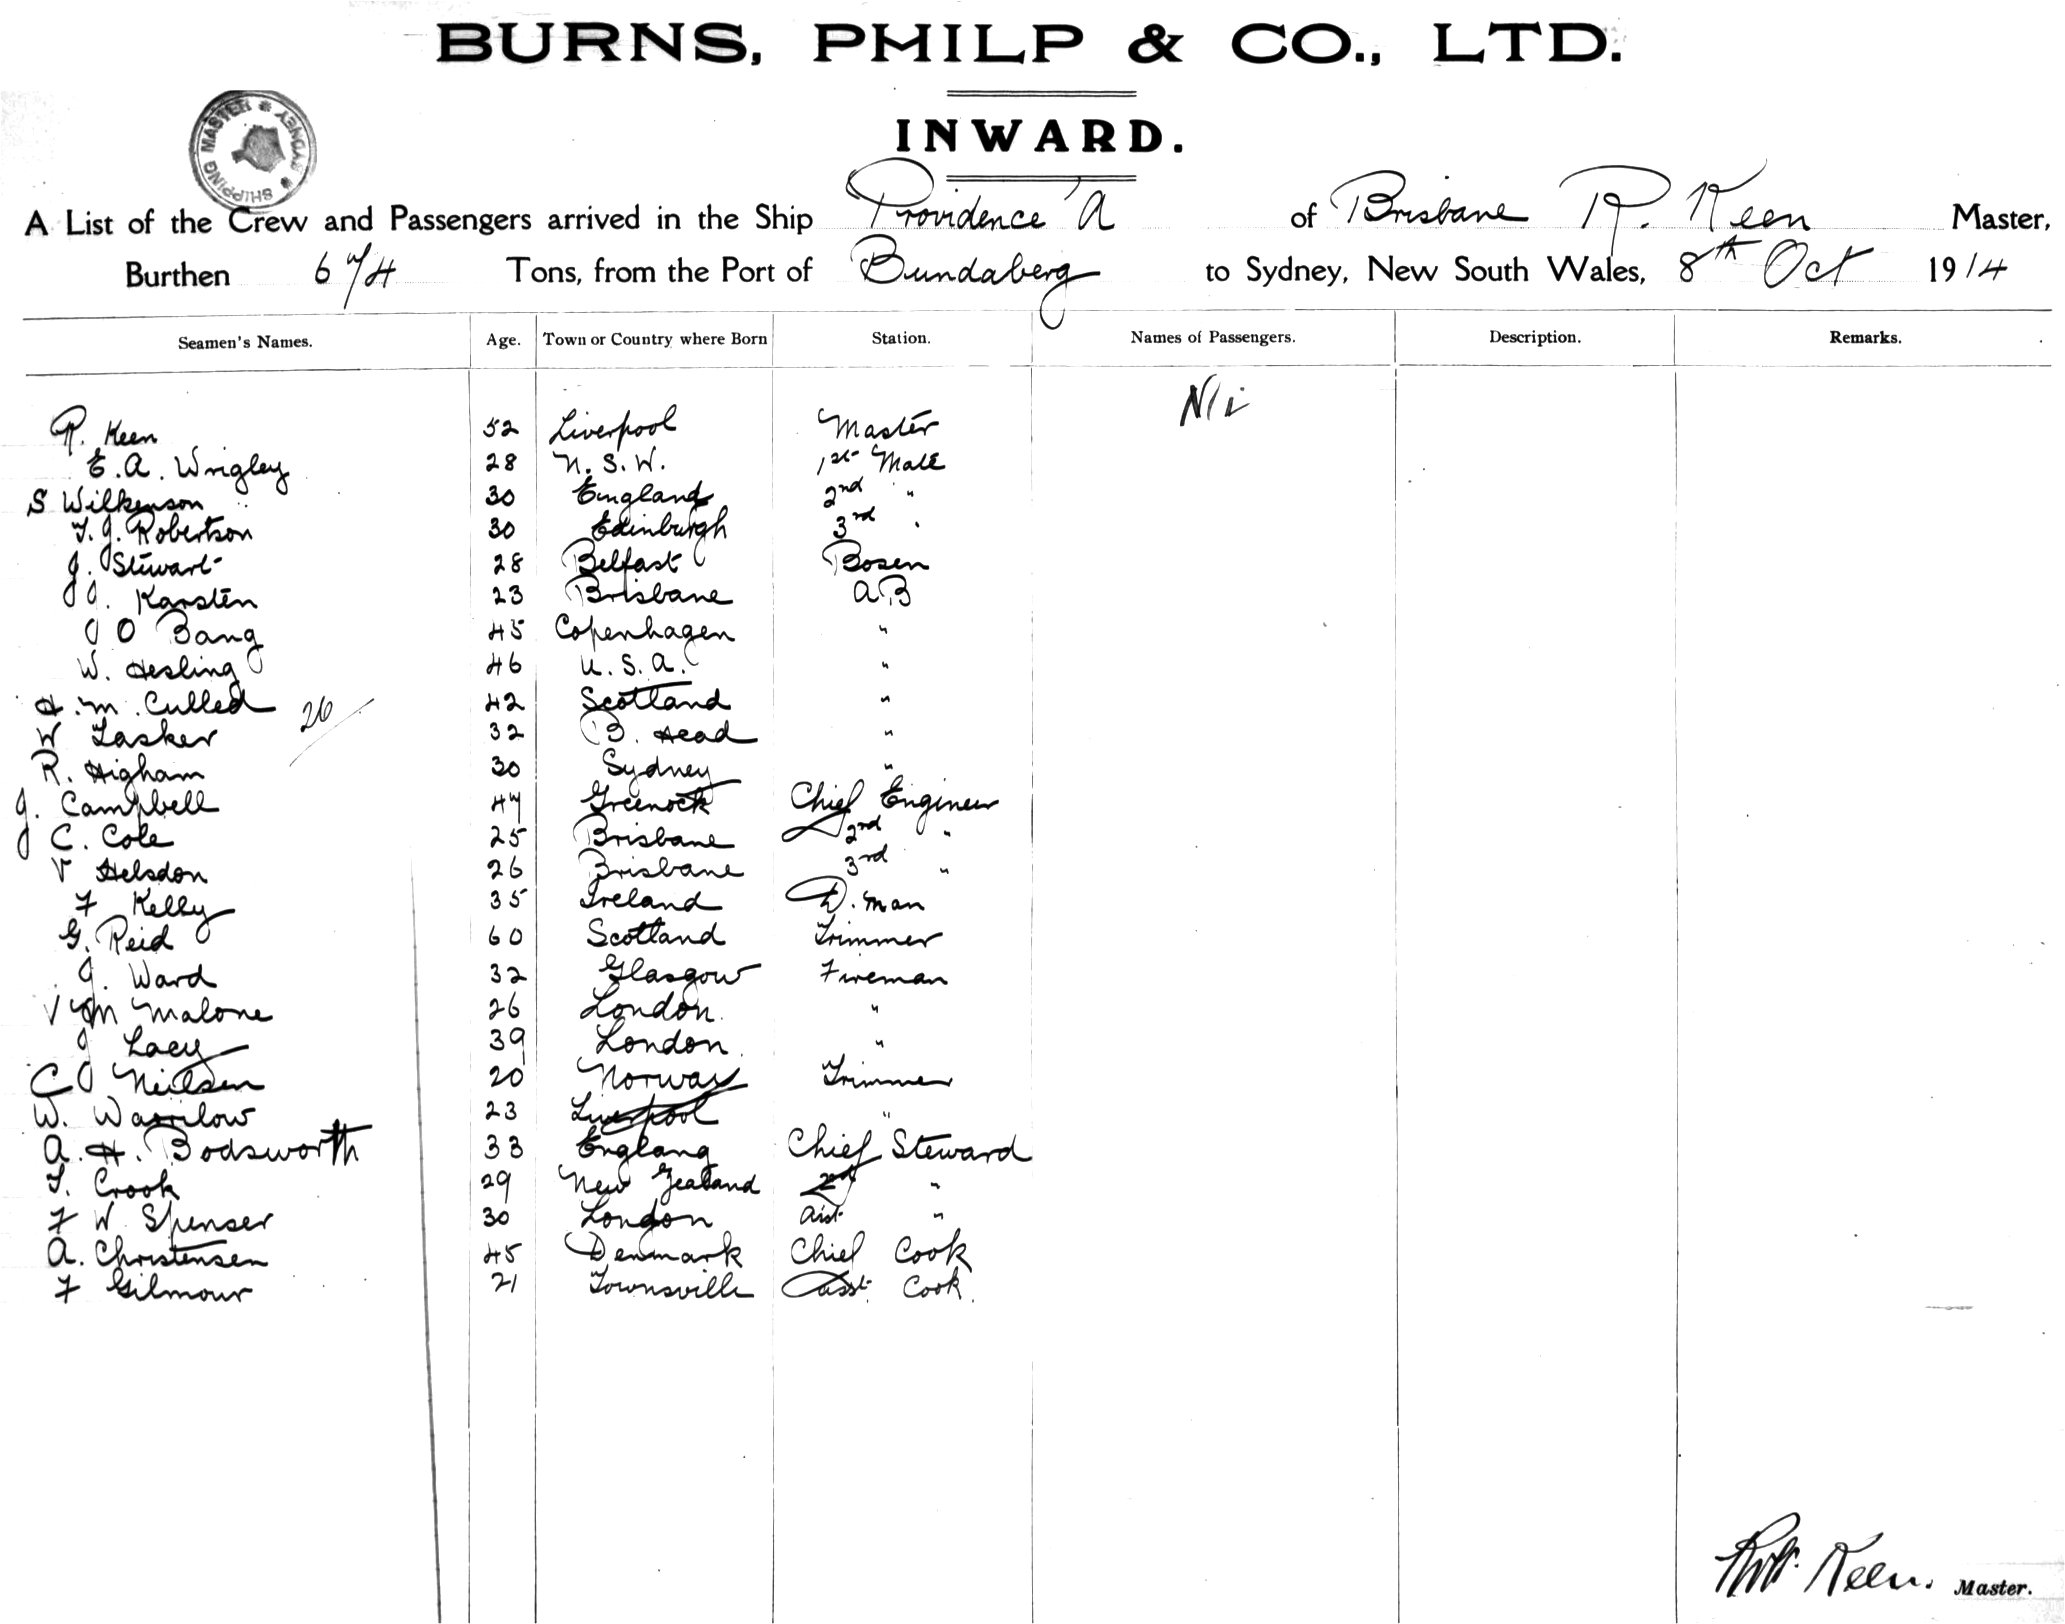 BURNS, PHILP & CO., LTD.
INWARD.
SHIPPING MASTER * SYDNEY *
A List of the Crew and Passengers arrived in the Ship Providence 'A of Brisbane R. Keen Master,
Burthen 674 Tons, from the Port of Bundaberg to Sydney, New South Wales, 8th Oct 1914
Seamen's Names. Age. Town or Country where Born Station. Names of Passengers. Description. Remarks.
Nil
R. Keen 52 Liverpool Master
E. A. Wrigley 28 N. S. W. 1st Mate
S Wilkenson 30 England 2nd "
T. J. Robertson 30 Edinburgh 3rd "
J. Stewart 28 Belfast Bosen
J. Karsten 23 Brisbane A B
J O Bang 45 Copenhagen "
W. Hesling 46 U. S. A. "
H. M. Culled 42 Scotland "
26
W Tasker 32 B. Head "
R. Higham 30 Sydney "
J. Campbell 47 Greenock Chief Engineer
C. Cole 25 Brisbane 2nd "
V Helsdon 26 Brisbane 3rd "
F Kelly 35 Ireland D. man
G. Reid 60 Scotland Trimmer
J. Ward 32 Glasgow Fireman
Malone 26 London "
J Lacy 39 London "
C Neilsen 20 Norway Trimmer
W. Warrilow 23 Liverpool "
A. H. Bodsworth 33 Englang Chief Steward
T. Crook 29 New Zealand 2nd "
F W Spenser 30 London Aist "
A. Christensen 45 Denmark Chief Cook
F Gilmour 21 Townsville Asst Cook
Robt. Keen. Master.